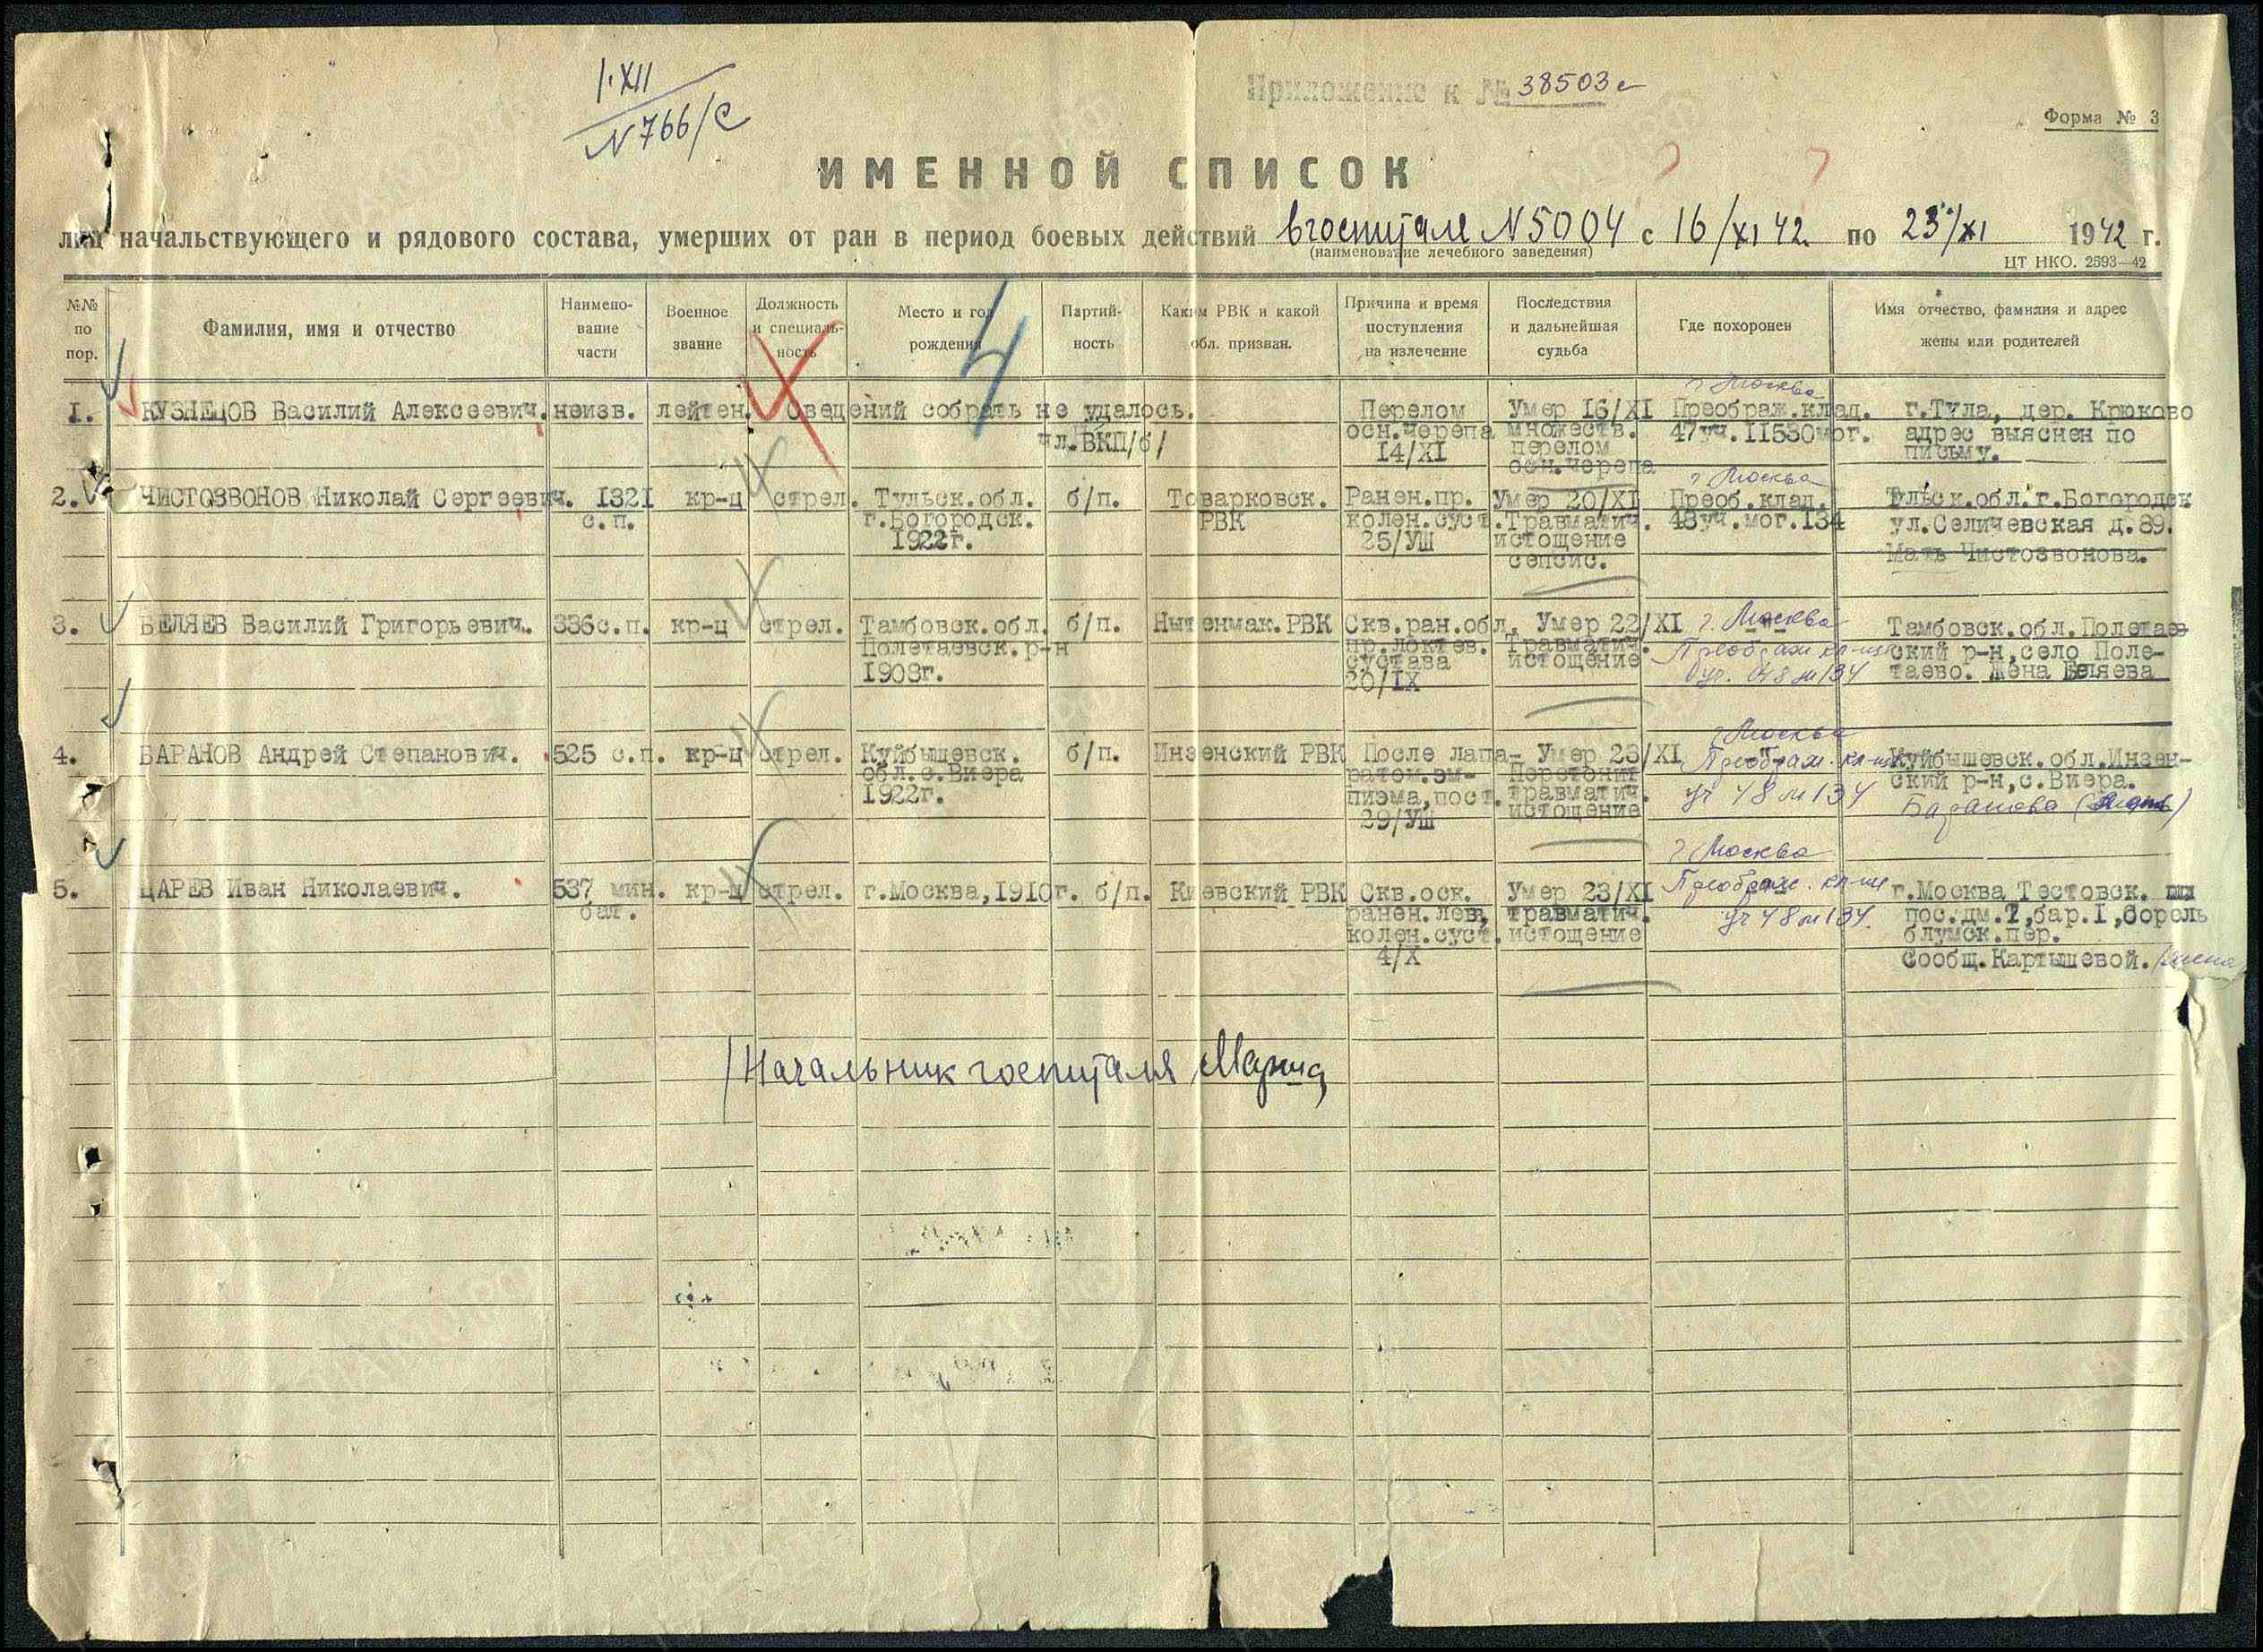 1.XII
N766/с
Приложению к № 38503с
Форма № 3
ИМЕННОЙ СПИСОК
лиц начальствующего и рядового состава, умерших от ран в период боевых действий в госпитале N5004 с 16/XI 42. по 23/XI 1942 г.
(наименование лечебного заведения)
ЦТ НКО. 2593—42
№№ по пор.
Фамилия, имя и отчество
Наимено-
вание
части
Военное
звание
Должность
и специаль-
ность
Место и год
рождения
Партий-
ность
Каким РВК и какой
обл. призван.
Причина и время
поступления
на излечение
Последствия
и дальнейшая
судьба
Где похоронен
Имя отчество, фамилия и адрес
жены или родителей
1. КУЗНЕЦОВ Василий Алексеевич. неизв. лейтен. Сведений собрать не удалось.
чл.ВКП/б/
Перелом
осн.черепа
14/XI
Умер 16/XI
множеств.
перелом
осн.черепа
г Москва
Преображ.клад.
47уч.11530мог.
г.Тула, дер. Крюково
адрес выяснен по
письму.
2. ЧИСТОЗВОНОВ Николай Сергеевич. 1321
с.п.
кр-ц
стрел.
Тульск.обл.
г.Богородск.
1922г.
б/п.
Товарковск.
РВК
Ранен.пр.
колен.суст.
25/УШ
Умер 20/XI
Травматич.
истощение
сепсис.
г Москва
Преоб.клад.
48уч.мог.134
Тульск.обл.г.Богородск
ул.Селичевская д.89.
Мать Чистозвонова.
3. БЕЛЯЕВ Василий Григорьевич. 336с.п. кр-ц стрел.
Тамбовск.обл.
Полетаевск.р-н
1908г.
б/п.
РВК
Скв.ран.обл.
пр.локтев.
сустава
20/IX
Умер 22/XI
Травматич.
истощение
г. Москва
Преображ. кл-ще
уч. 48 м 134
Тамбовск.обл.Полетаев
ский р-н,село Поле-
таево. Жена Беляева
4. БАРАНОВ Андрей Степанович. 525 с.п. кр-ц стрел.
Куйбышевск.
обл.с.Виера
1922г.
б/п.
Инзенский РВК
После лапа-
ратом.эм-
пиэма,пост.
29/УШ
Умер 23/XI
Перетонит
травматич.
истощение
г Москва
Преображ. кл-ще
уч 48 м 134
Куйбышевск.обл.Инзен-
ский р-н,с.Виера.
Баранова (мать)
5. ЦАРЕВ Иван Николаевич. 537 мин.
бат.
кр-ц
стрел.
г.Москва,1910г. б/п. Киевский РВК
Скв.оск.
ранен.лев.
колен.суст.
4/X
Умер 23/XI
травматич.
истощение
г Москва
Преображ. кл-ще
уч 48 м 134.
г.Москва Тестовск.
пос.дм.7,бар.1,Сорель
блумск.пер.
Сообщ.Картышевой.
Начальник госпиталя